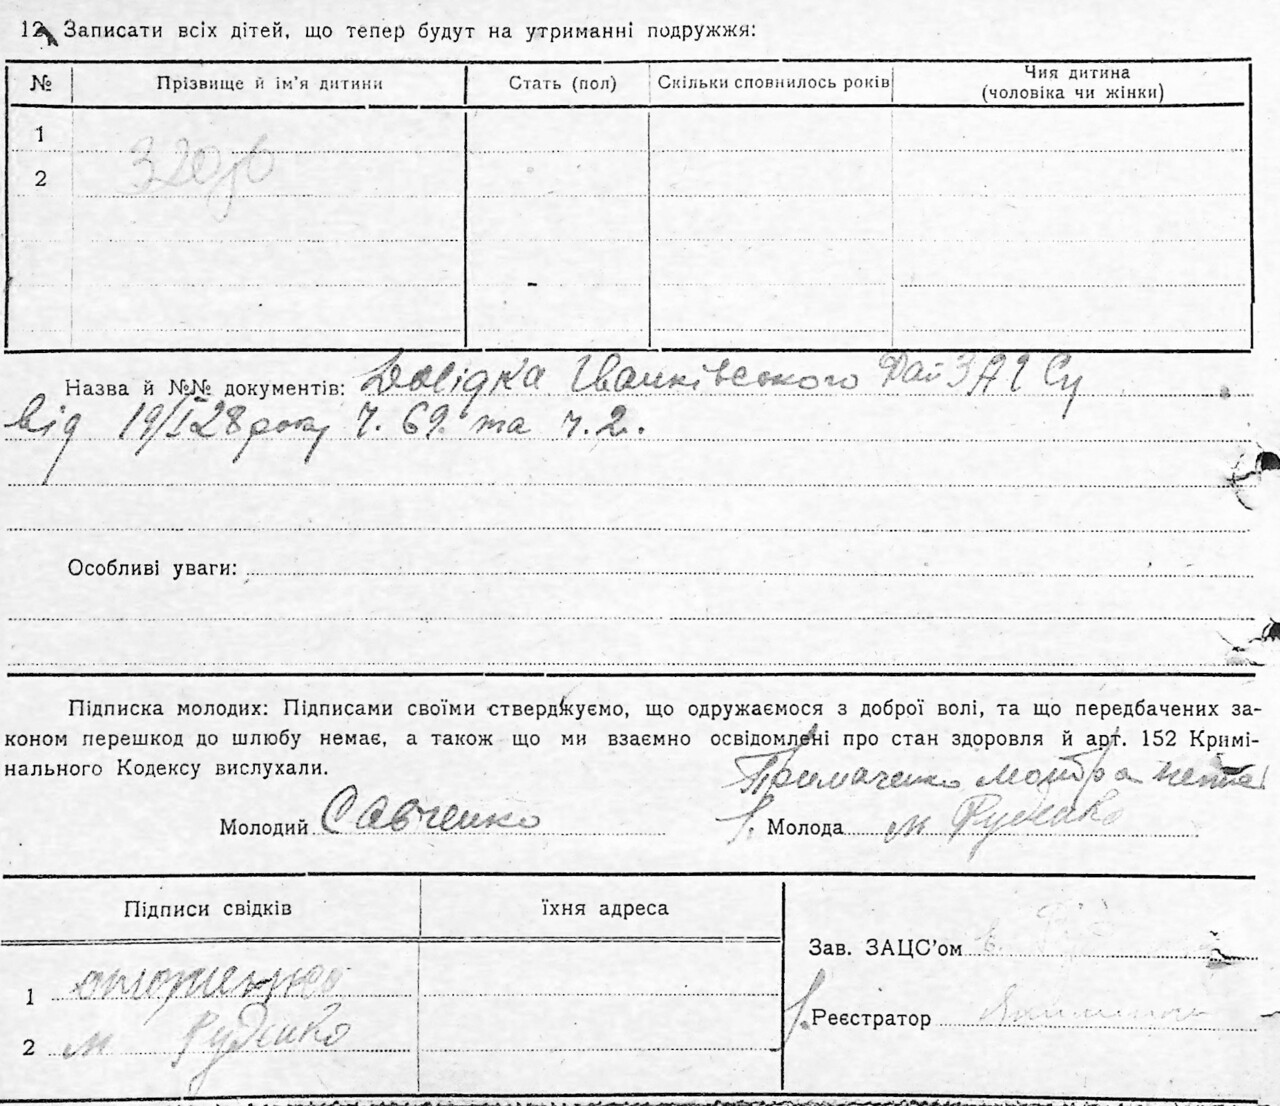 12. Записати всіх дітей, що тепер будут на утриманні подружжя:
№ Прізвище й ім'я дитини Стать (пол) Скільки сповнилось років Чия дитина (чоловіка чи жінки)
1
2
Назва й №№ документів: Довідка Іванківського Рай ЗАГСу
від 19/I 28 року Ч. 69 та ч. 2.
Особливі уваги:
Підписка молодих: Підписами своїми стверджуємо, що одружаємося з доброї волі, та що передбачених за-
коном перешкод до шлюбу немає, а також що ми взаємно освідомлені про стан здоровля й арт. 152 Кримі-
нального Кодексу вислухали.
Примаченко
Молодий Савченко Молода м Руденко
Підписи свідків їхня адреса
Зав. ЗАЦС'ом
1
Реєстратор
2 м Руденко